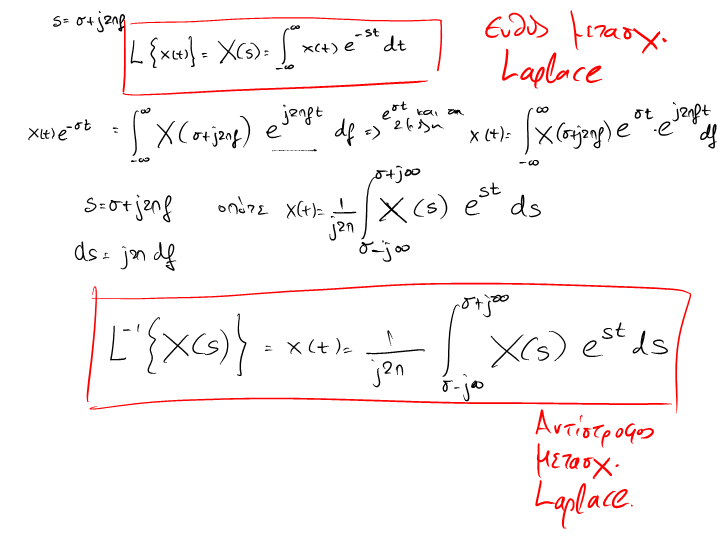 s = σ+j2πf
L{x(t)} = X(s) = ∫_{-∞}^{∞} x(t) e^{-st} dt
Ευθυς μετασχ.
Laplace
x(t)e^{-σt} = ∫_{-∞}^{∞} X(σ+j2πf) e^{j2πft} df => e^{σt} και στα x(t) = ∫_{-∞}^{∞} X(σ+j2πf) e^{σt} · e^{j2πft} df
s = σ+j2πf οπότε x(t) = 1/j2π ∫_{σ-j∞}^{σ+j∞} X(s) e^{st} ds
ds = j2π df
L^{-1}{X(s)} = x(t) = 1/j2π ∫_{σ-j∞}^{σ+j∞} X(s) e^{st} ds
Αντίστροφος
μετασχ.
Laplace.